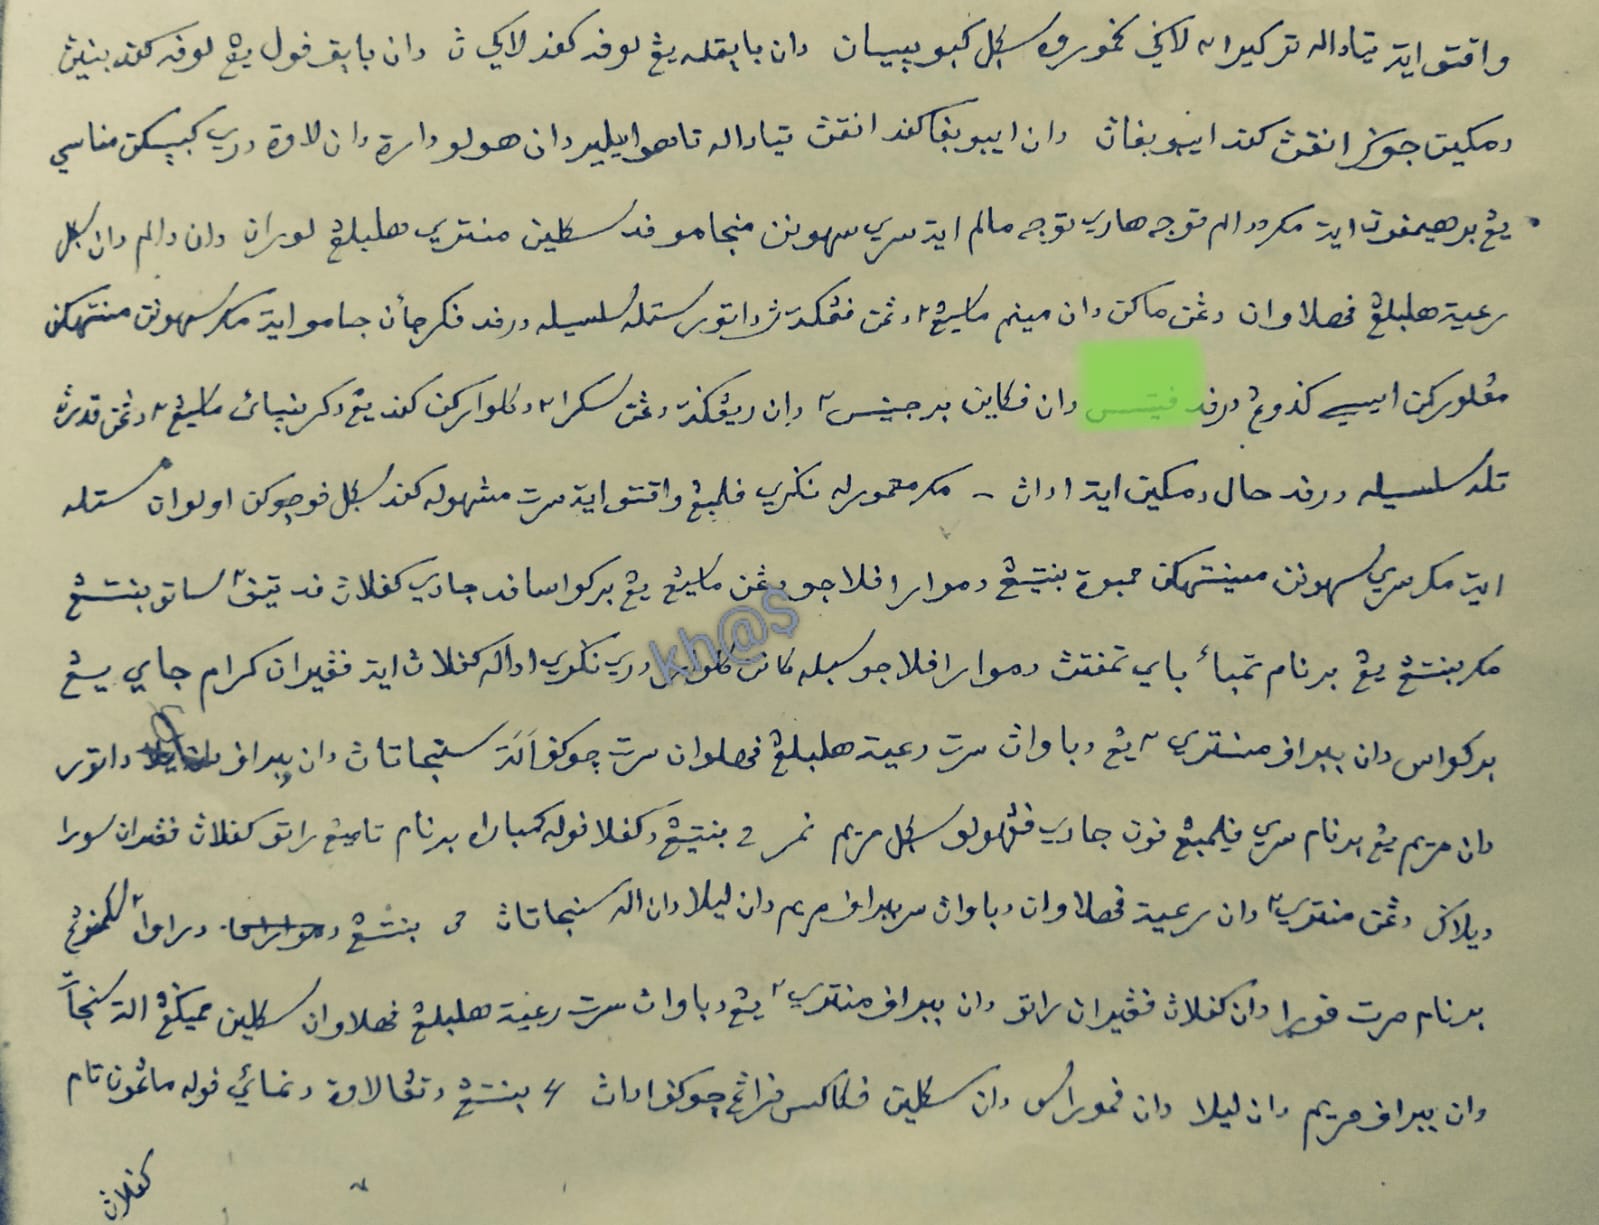 واقتو ايت تيادله تركيرا٢ لاݢي كخموره سݢل كبوييسان دان باڤقله يڠ لوڤه كفد لاكي ث دان باڤق ڤول يڠ لوڤه كفد بنيڽ
دمكين جوݢ انقڽ كفد ايبو بفاڽ دان ايبو بفا كفد انقڽ تيادله تاهو ايلير دان هولو دارة دان لاوة دري كبيسكن مناسي
يڠ برهيمفون ايت مك ددالم توجه هاري توجه مالم ايت سري سهونن منجامو فد سكلين منتري هلبلڠ لوران دان دالم دان سݢل
رعية هلبلڠ فهلاوان دڠن ماكن دان مينم ماسيڠ٢ دڠن فڠكتڽ داتور ستله سلسيله درفد فكرجأن جامو ايت مك سهونن منتهكن
مڠلوركن ايسي كدوڠ درفد فيتيس دان فكاين برجينس٢ دان ريڠكت دڠن سكرا٢ دكلواركن كفد يڠ دكربنياث ماسيڠ٢ دڠن قدرڽ
تله سلسيله درفد حال دمكين ايت اداڽ - مك معموره نكري فلمبڠ واقتو ايت سرت مشهوله كفد سݢل فوجوكن اولوان ستله
ايت مك سري سهونن مينتهكن ممبوة بنتڠ دموارا فلاجو دڠن ماسيڠ يڠ بركواسا فد جادي كفلاڽ فد تيف٢ ساتو بنتڠ
مك بنتڠ يڠ برنام تمبأ باي تمفتڽ دموارا فلاجو سبله كانن كلوار دري نكري اداله كفلاڽ ايت فڠيران كرام جاي يڠ
بركواس دان ببراف منتري٢ يڠ دباواڽ سرت رعية هلبلڠ فهلوان سرت چوكف الة سنجاتاڽ دان ببراف داتور
دان مريم يڠ برنام سري فلمبڠ فون جادي فڠهولو سݢل مريم نمر 2 بنتڠ دكفلا فوله كمبارا برنام تامبڠ راتو كفلاڽ فڠيران سورا
ديلاݢ دڠن منتري٢ دان رعية فهلاوان دباواڽ سر ببراف مريم دان ليلا دان اله سنجاتاڽ 3 بنتڠ دراوا٢
برنام مرت فورا دان كفلاڽ فڠيران راتو دان ببراف منتري٢ يڠ دباواڽ سرت رعية هلبلڠ فهلاوان سكلين ممݢڠ الة سنجات
دان ببراف مريم دان ليلا دان فموراس دان سكلين فركاكس فراڠ چوكف اداڽ 4 بنتڠ دتڠا لاوة دنمائي فوله ماڠون تام
كفلاڽ
kh@s